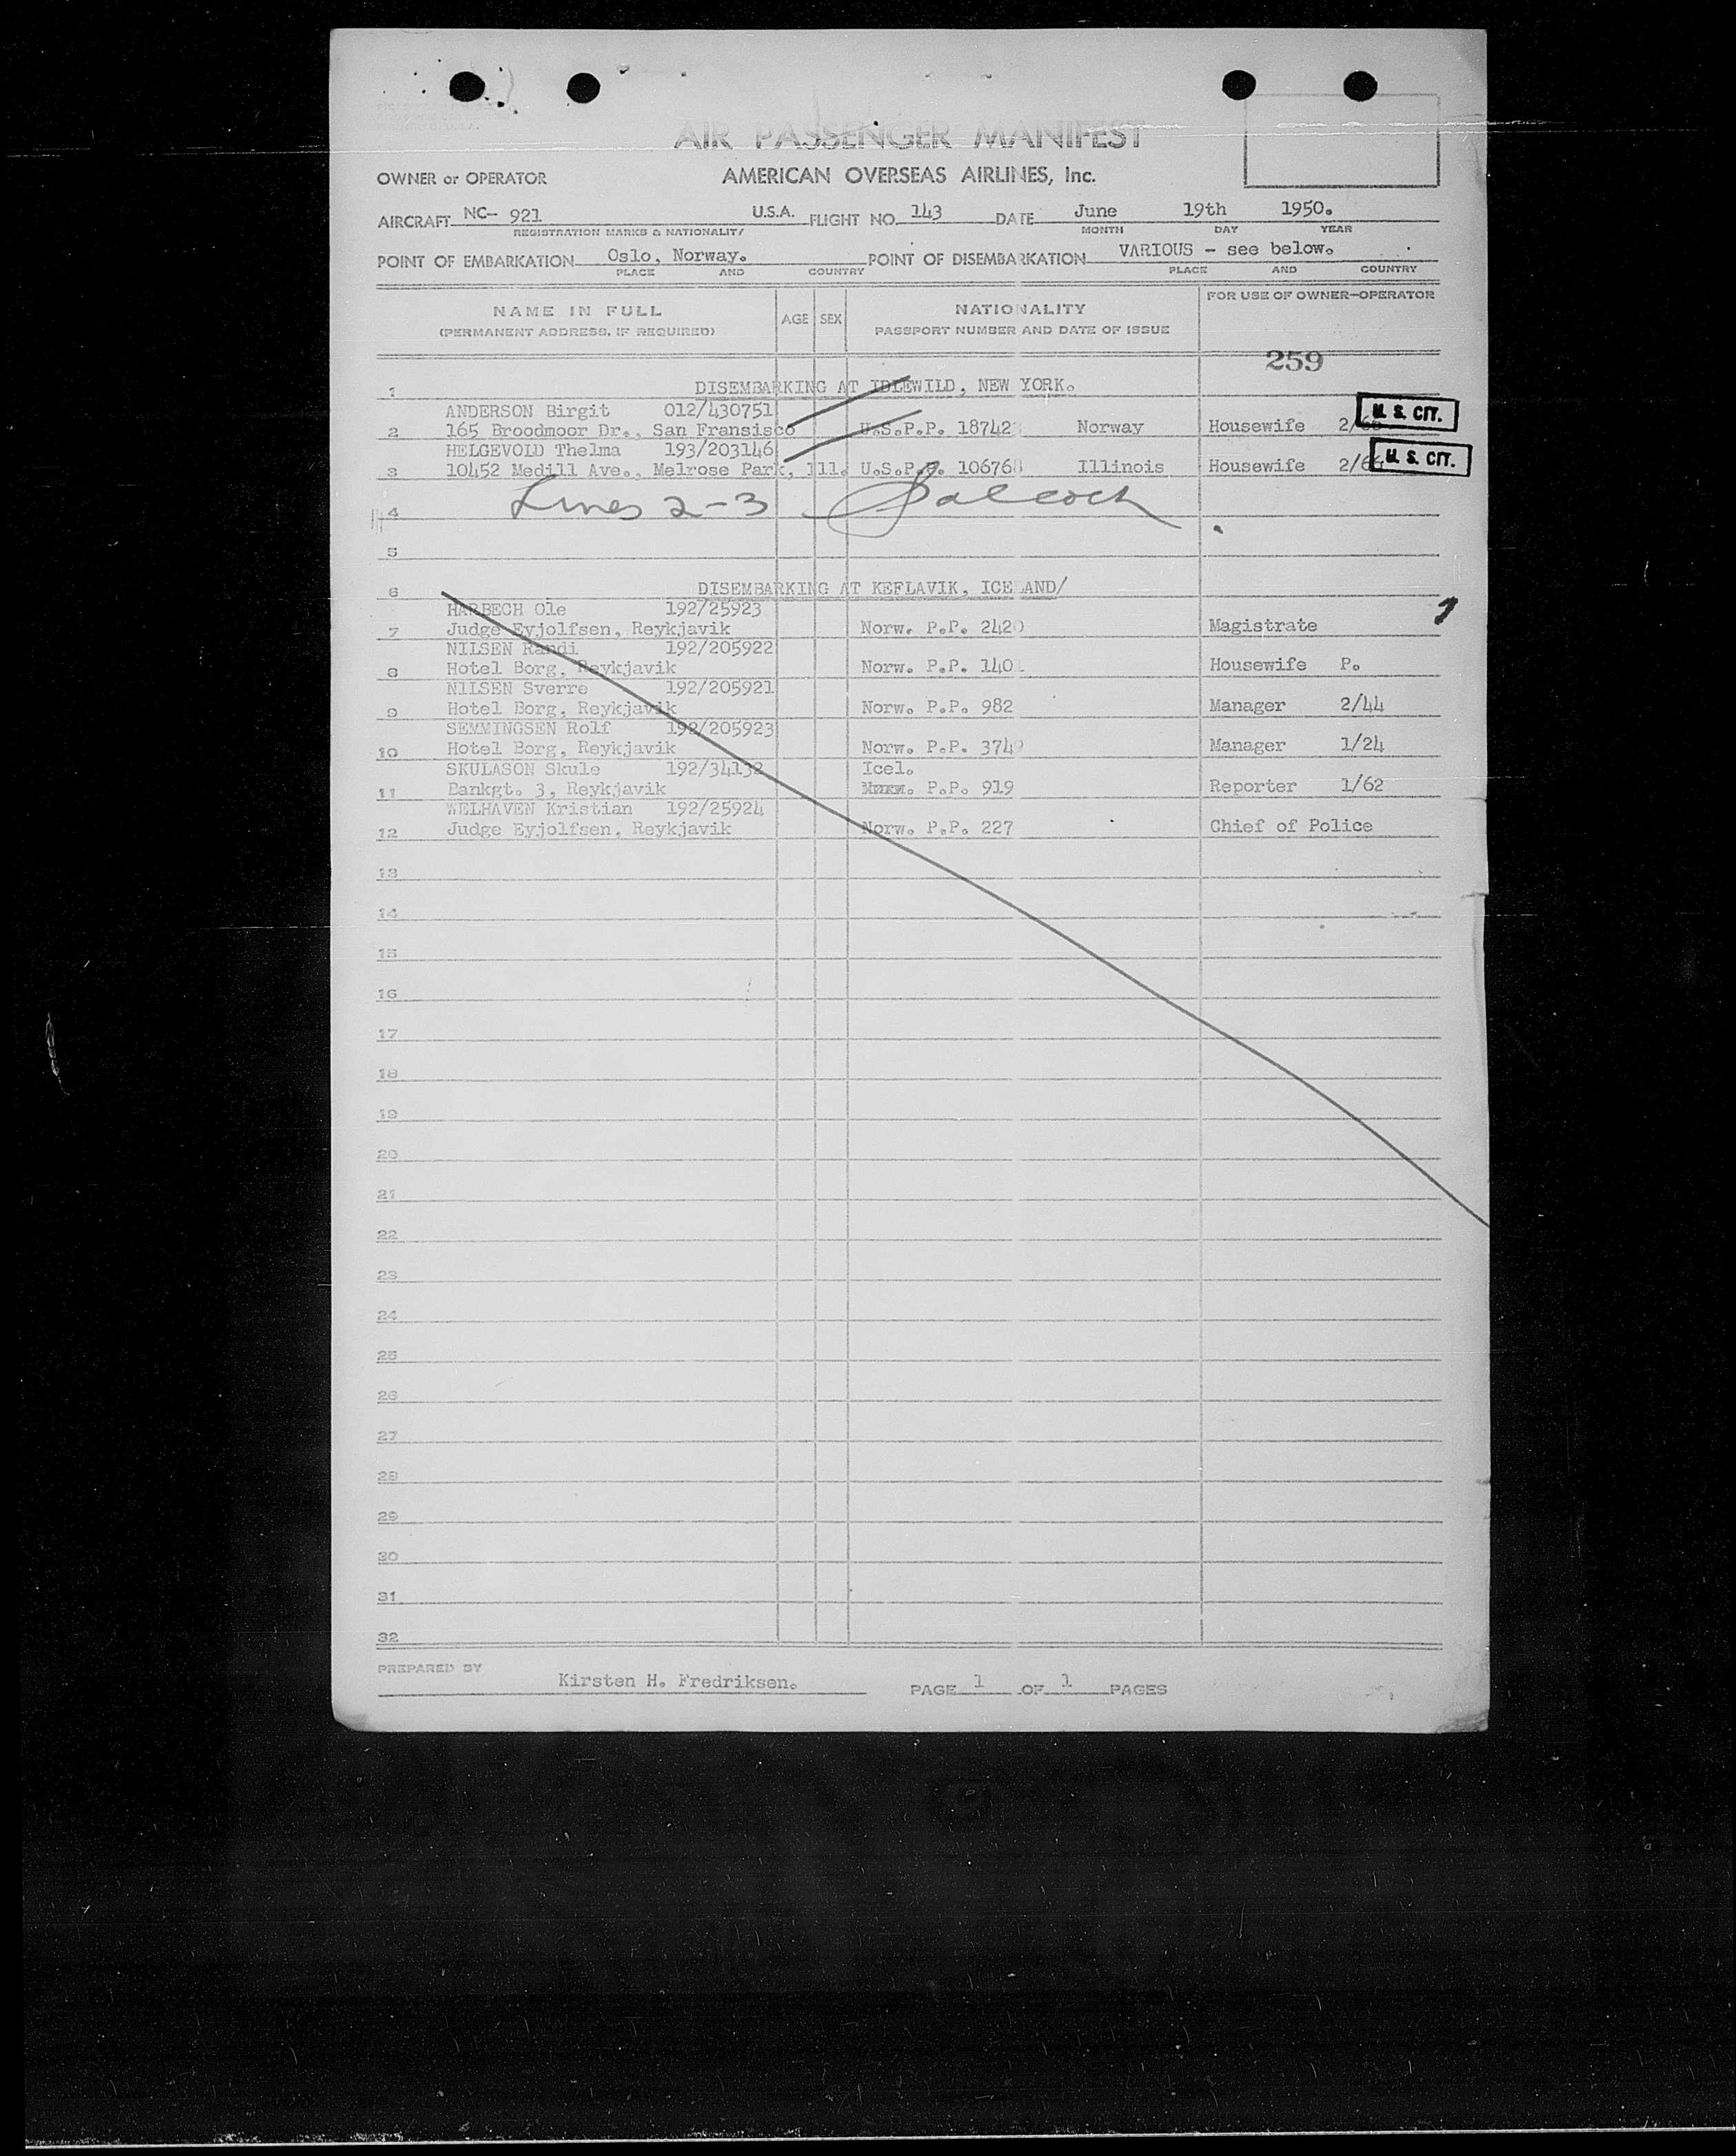 AIR PASSENGER MANIFEST
OWNER or OPERATOR AMERICAN OVERSEAS AIRLINES, Inc.
AIRCRAFT NC- 921 U.S.A. FLIGHT NO. 143 DATE June 19th 1950.
REGISTRATION MARKS & NATIONALITY MONTH DAY YEAR
POINT OF EMBARKATION Oslo, Norway. POINT OF DISEMBARKATION VARIOUS - see below.
PLACE AND COUNTRY PLACE AND COUNTRY
NAME IN FULL AGE SEX NATIONALITY FOR USE OF OWNER-OPERATOR
(PERMANENT ADDRESS, IF REQUIRED) PASSPORT NUMBER AND DATE OF ISSUE
259
1 DISEMBARKING AT IDLEWILD, NEW YORK.
ANDERSON Birgit 012/430751
2 165 Broodmoor Dr., San Fransisco U.S.P.P. 18742 Norway Housewife U. S. CIT.
HELGEVOLD Thelma 193/203146
3 10452 Medill Ave., Melrose Park, Ill. U.S.P.P. 106768 Illinois Housewife 2/64 U. S. CIT.
4 Lines 2-3
5
6 DISEMBARKING AT KEFLAVIK, ICELAND/
HARBECH Ole 192/25923
7 Judge Eyjolfsen, Reykjavik Norw. P.P. 2420 Magistrate
NILSEN Randi 192/205922
8 Hotel Borg, Reykjavik Norw. P.P. 140 Housewife P.
NILSEN Sverre 192/205921
9 Hotel Borg, Reykjavik Norw. P.P. 982 Manager 2/44
SEMMINGSEN Rolf 192/205923
10 Hotel Borg, Reykjavik Norw. P.P. 3749 Manager 1/24
SKULASON Skule 192/34132 Icel.
11 Bankgt. 3, Reykjavik P.P. 919 Reporter 1/62
WELHAVEN Kristian 192/25924
12 Judge Eyjolfsen, Reykjavik Norw. P.P. 227 Chief of Police
13
14
15
16
17
18
19
20
21
22
23
24
25
26
27
28
29
30
31
32
PREPARED BY Kirsten H. Fredriksen. PAGE 1 OF 1 PAGES